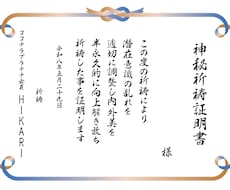 神秘祈祷証明書
様
この度の祈祷により
潜在意識の乱れを
適切に調整し内外美を
半永久的に向上解き放ち
祈祷した事を証明します
令和八年五月二十九日
祈祷
ココナラプラチナ会員
HIKARI